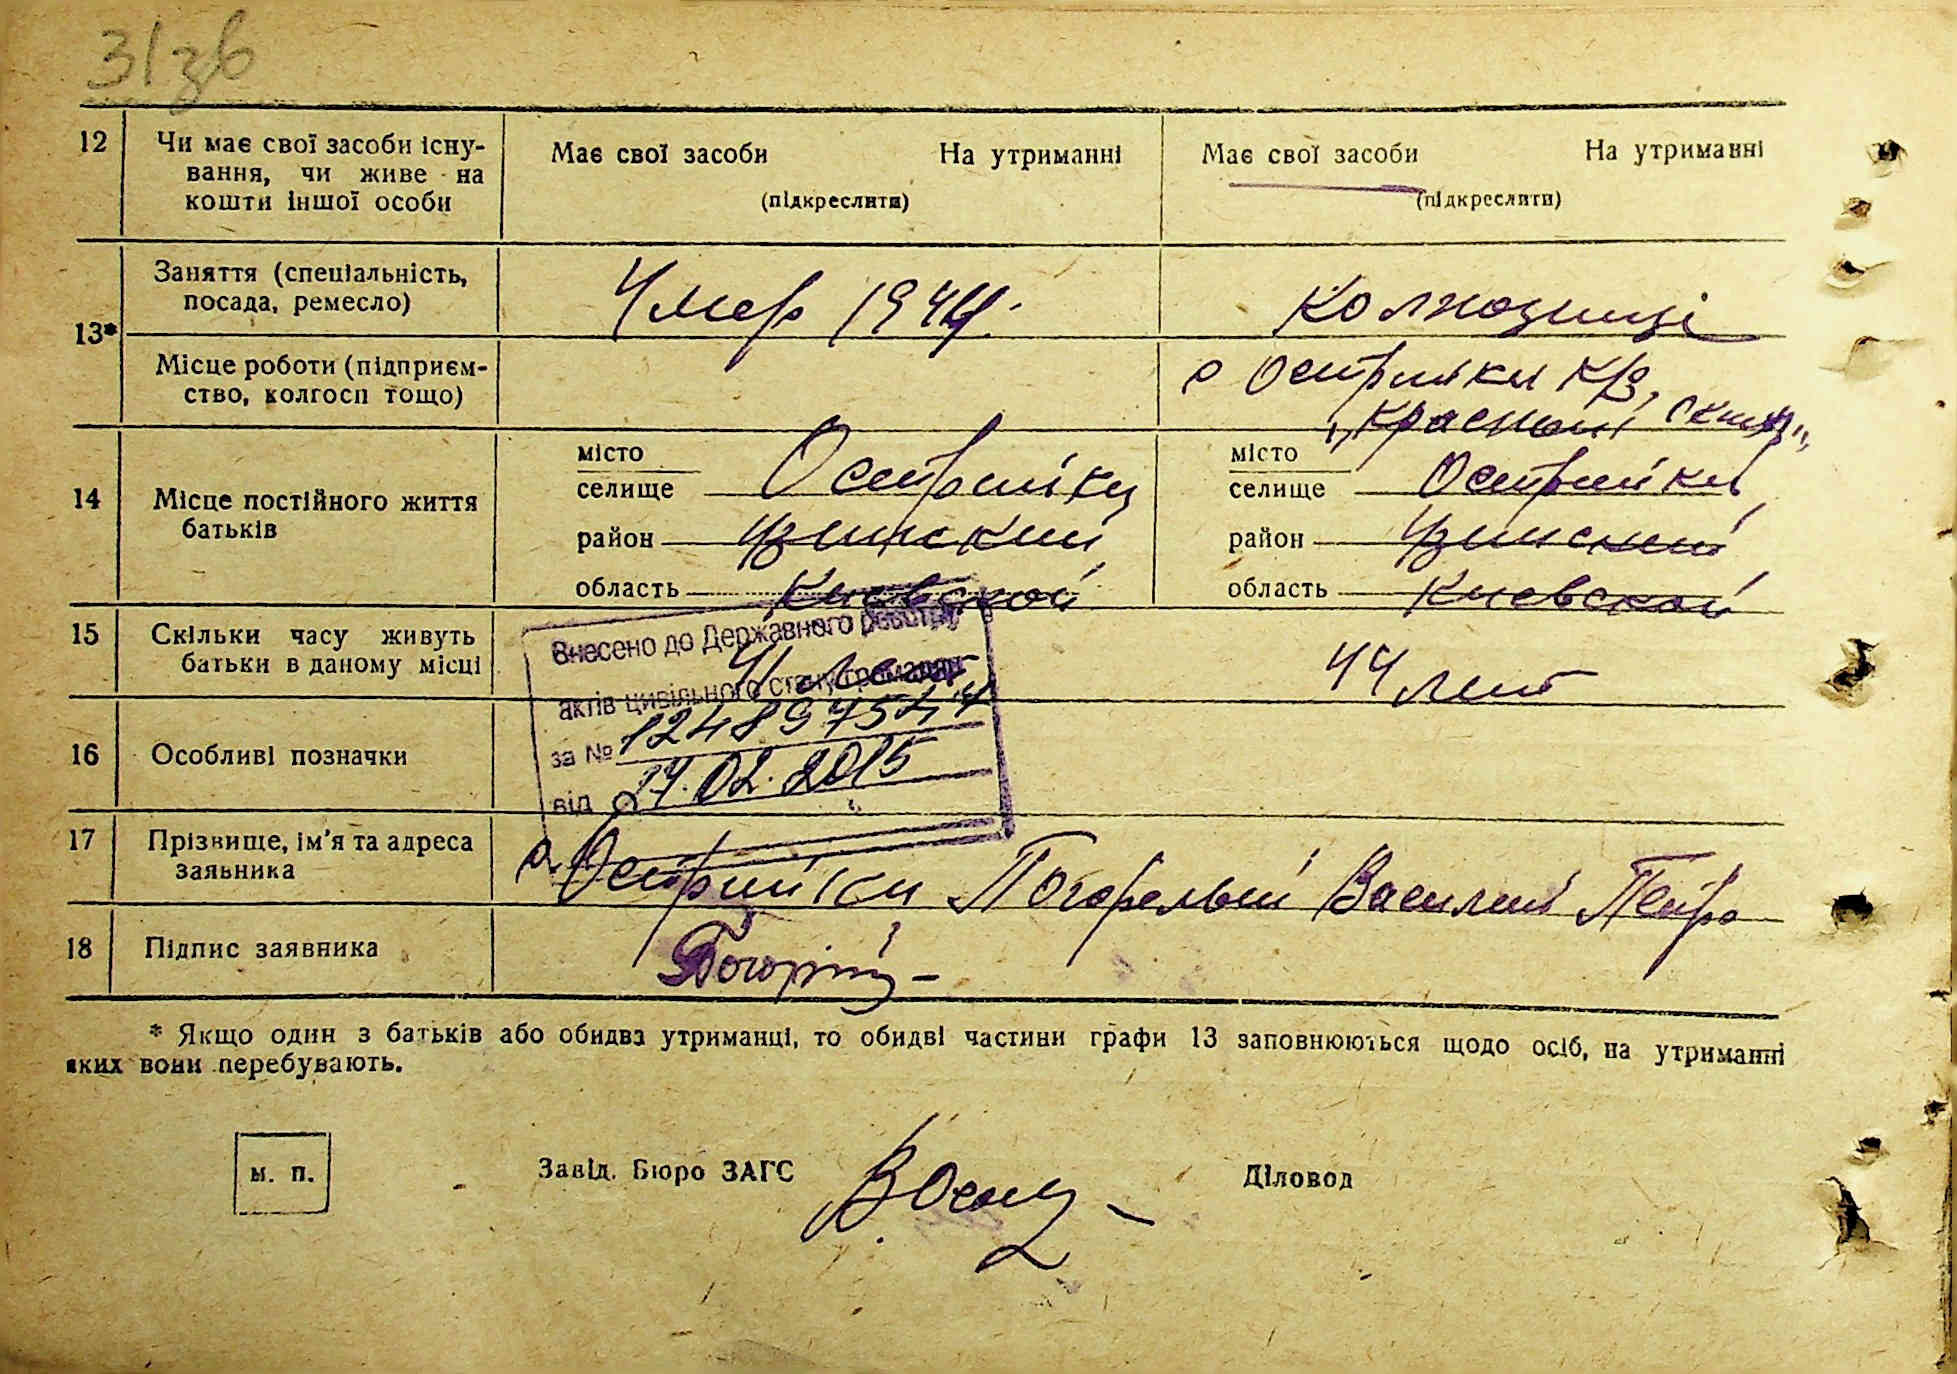 31зв
12 Чи має свої засоби існу- Має свої засоби На утриманні Має свої засоби На утриманні
вання, чи живе на
кошти іншої особи (підкреслити) (підкреслити)
Заняття (спеціальність, Умер 1944.
посада, ремесло)
13*
Місце роботи (підприєм- с Острийки К/з,
ство, колгосп тощо) "Красный
місто місто
14 Місце постійного життя селище Острийки селище Острийки
батьків район Узинский район Узинский
область Киевской область Киевской
15 Скільки часу живуть 44 лет
батьки в даному місці
Внесено до Державного реєстру
актів цивільного стану громадян
за №
від 17.02.2015
16 Особливі позначки
17 Прізвище, ім'я та адреса с. Острийки Погорелый Василий Петро
заявника
18 Підпис заявника
* Якщо один з батьків або обидва утриманці, то обидві частини графи 13 заповнюються щодо осіб, на утриманні
яких вони перебувають.
м. п. Завід. Бюро ЗАГС Діловод